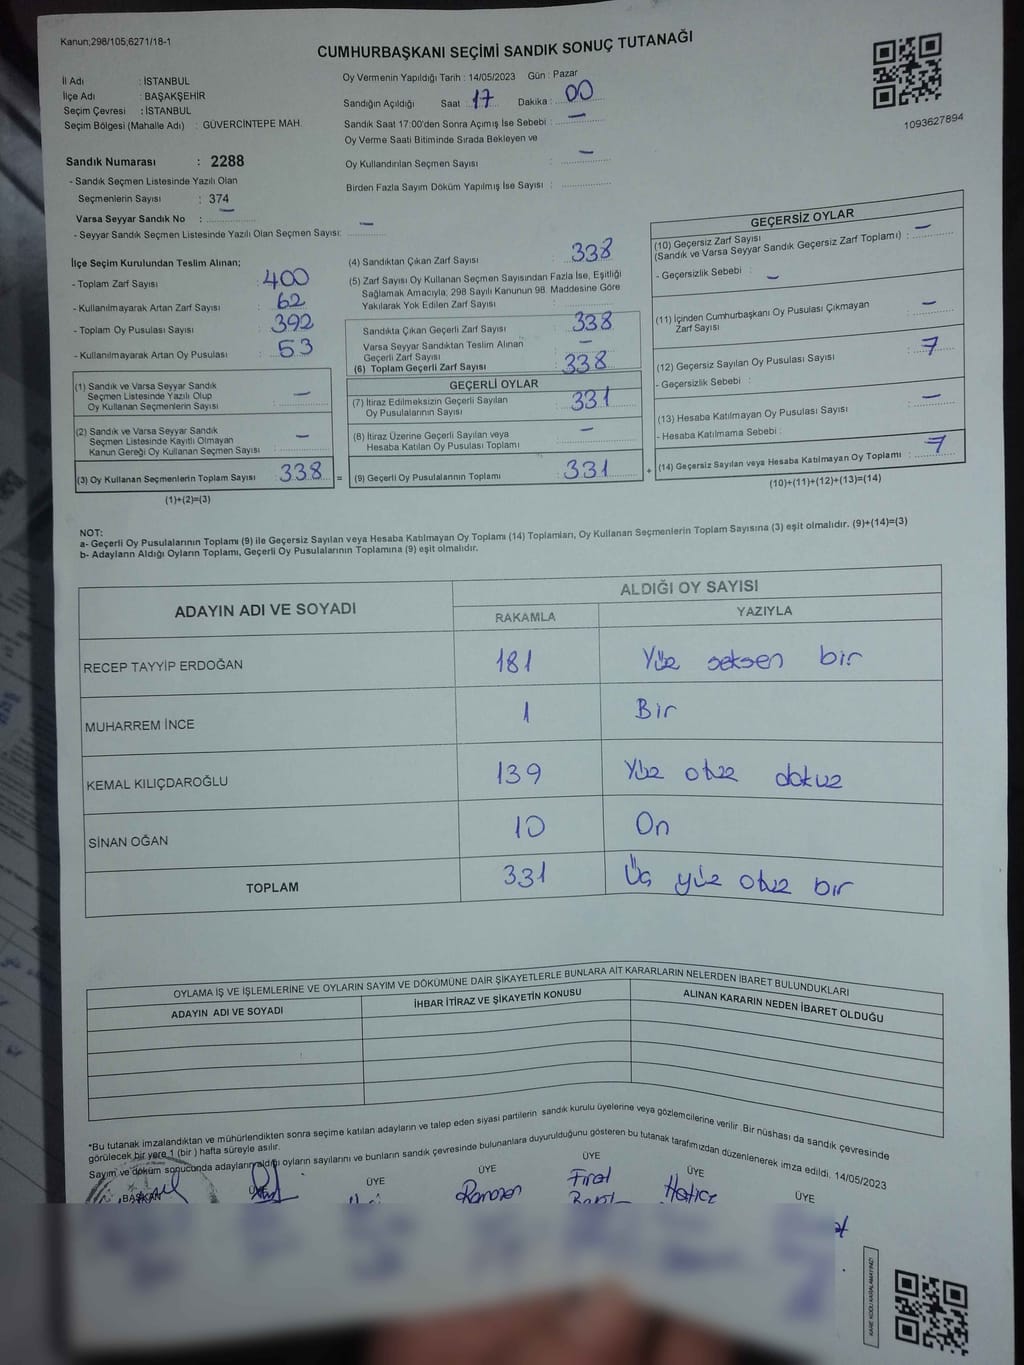 Kanun;298/105;6271/18-1
CUMHURBAŞKANI SEÇİMİ SANDIK SONUÇ TUTANAĞI
İl Adı : İSTANBUL
İlçe Adı : BAŞAKŞEHİR
Seçim Çevresi : İSTANBUL
Seçim Bölgesi (Mahalle Adı) : GÜVERCİNTEPE MAH.
Oy Vermenin Yapıldığı Tarih : 14/05/2023 Gün : Pazar
Sandığın Açıldığı Saat : 17 Dakika : 00
Sandık Saat 17:00'den Sonra Açımış İse Sebebi : —
Oy Verme Saati Bitiminde Sırada Bekleyen ve
Oy Kullandırılan Seçmen Sayısı : —
Birden Fazla Sayım Döküm Yapılmış İse Sayısı :
1093627894
Sandık Numarası : 2288
- Sandık Seçmen Listesinde Yazılı Olan
Seçmenlerin Sayısı : 374
Varsa Seyyar Sandık No : —
- Seyyar Sandık Seçmen Listesinde Yazılı Olan Seçmen Sayısı: —
İlçe Seçim Kurulundan Teslim Alınan;
- Toplam Zarf Sayısı : 400
- Kullanılmayarak Artan Zarf Sayısı : 62
- Toplam Oy Pusulası Sayısı : 392
- Kullanılmayarak Artan Oy Pusulası : 53
(1) Sandık ve Varsa Seyyar Sandık
Seçmen Listesinde Yazılı Olup
Oy Kullanan Seçmenlerin Sayısı : —
(2) Sandık ve Varsa Seyyar Sandık
Seçmen Listesinde Kayıtlı Olmayan
Kanun Gereği Oy Kullanan Seçmen Sayısı : —
(3) Oy Kullanan Seçmenlerin Toplam Sayısı : 338
(1)+(2)=(3)
(4) Sandıktan Çıkan Zarf Sayısı : 338
(5) Zarf Sayısı Oy Kullanan Seçmen Sayısından Fazla İse, Eşitliği
Sağlamak Amacıyla; 298 Sayılı Kanunun 98. Maddesine Göre
Yakılarak Yok Edilen Zarf Sayısı :
Sandıkta Çıkan Geçerli Zarf Sayısı : 338
Varsa Seyyar Sandıktan Teslim Alınan
Geçerli Zarf Sayısı : —
(6) Toplam Geçerli Zarf Sayısı : 338
GEÇERLİ OYLAR
(7) İtiraz Edilmeksizin Geçerli Sayılan
Oy Pusulalarının Sayısı : 331
(8) İtiraz Üzerine Geçerli Sayılan veya
Hesaba Katılan Oy Pusulası Toplamı : —
= (9) Geçerli Oy Pusulalarının Toplamı : 331
GEÇERSİZ OYLAR
(10) Geçersiz Zarf Sayısı
(Sandık ve Varsa Seyyar Sandık Geçersiz Zarf Toplamı) : —
- Geçersizlik Sebebi : —
(11) İçinden Cumhurbaşkanı Oy Pusulası Çıkmayan
Zarf Sayısı : —
(12) Geçersiz Sayılan Oy Pusulası Sayısı : 7
- Geçersizlik Sebebi :
(13) Hesaba Katılmayan Oy Pusulası Sayısı : —
- Hesaba Katılmama Sebebi :
+ (14) Geçersiz Sayılan veya Hesaba Katılmayan Oy Toplamı : 7
(10)+(11)+(12)+(13)=(14)
NOT:
a- Geçerli Oy Pusulalarının Toplamı (9) ile Geçersiz Sayılan veya Hesaba Katılmayan Oy Toplamı (14) Toplamları, Oy Kullanan Seçmenlerin Toplam Sayısına (3) eşit olmalıdır. (9)+(14)=(3)
b- Adayların Aldığı Oyların Toplamı, Geçerli Oy Pusulalarının Toplamına (9) eşit olmalıdır.
ADAYIN ADI VE SOYADI
ALDIĞI OY SAYISI
RAKAMLA YAZIYLA
RECEP TAYYİP ERDOĞAN 181 Yüz seksen bir
MUHARREM İNCE 1 Bir
KEMAL KILIÇDAROĞLU 139 Yüz otuz dokuz
SİNAN OĞAN 10 On
TOPLAM 331 Üç yüz otuz bir
OYLAMA İŞ VE İŞLEMLERİNE VE OYLARIN SAYIM VE DÖKÜMÜNE DAİR ŞİKAYETLERLE BUNLARA AİT KARARLARIN NELERDEN İBARET BULUNDUKLARI
ADAYIN ADI VE SOYADI İHBAR İTİRAZ VE ŞİKAYETİN KONUSU ALINAN KARARIN NEDEN İBARET OLDUĞU
*Bu tutanak imzalandıktan ve mühürlendikten sonra seçime katılan adayların ve talep eden siyasi partilerin sandık kurulu üyelerine veya gözlemcilerine verilir. Bir nüshası da sandık çevresinde
görülecek bir yere 1 (bir) hafta süreyle asılır.
Sayım ve döküm sonucunda adayların aldığı oyların sayılarını ve bunların sandık çevresinde bulunanlara duyurulduğunu gösteren bu tutanak tarafımızdan düzenlenerek imza edildi. 14/05/2023
BAŞKAN ÜYE ÜYE ÜYE ÜYE ÜYE ÜYE
Ramazan Fırat Hatice